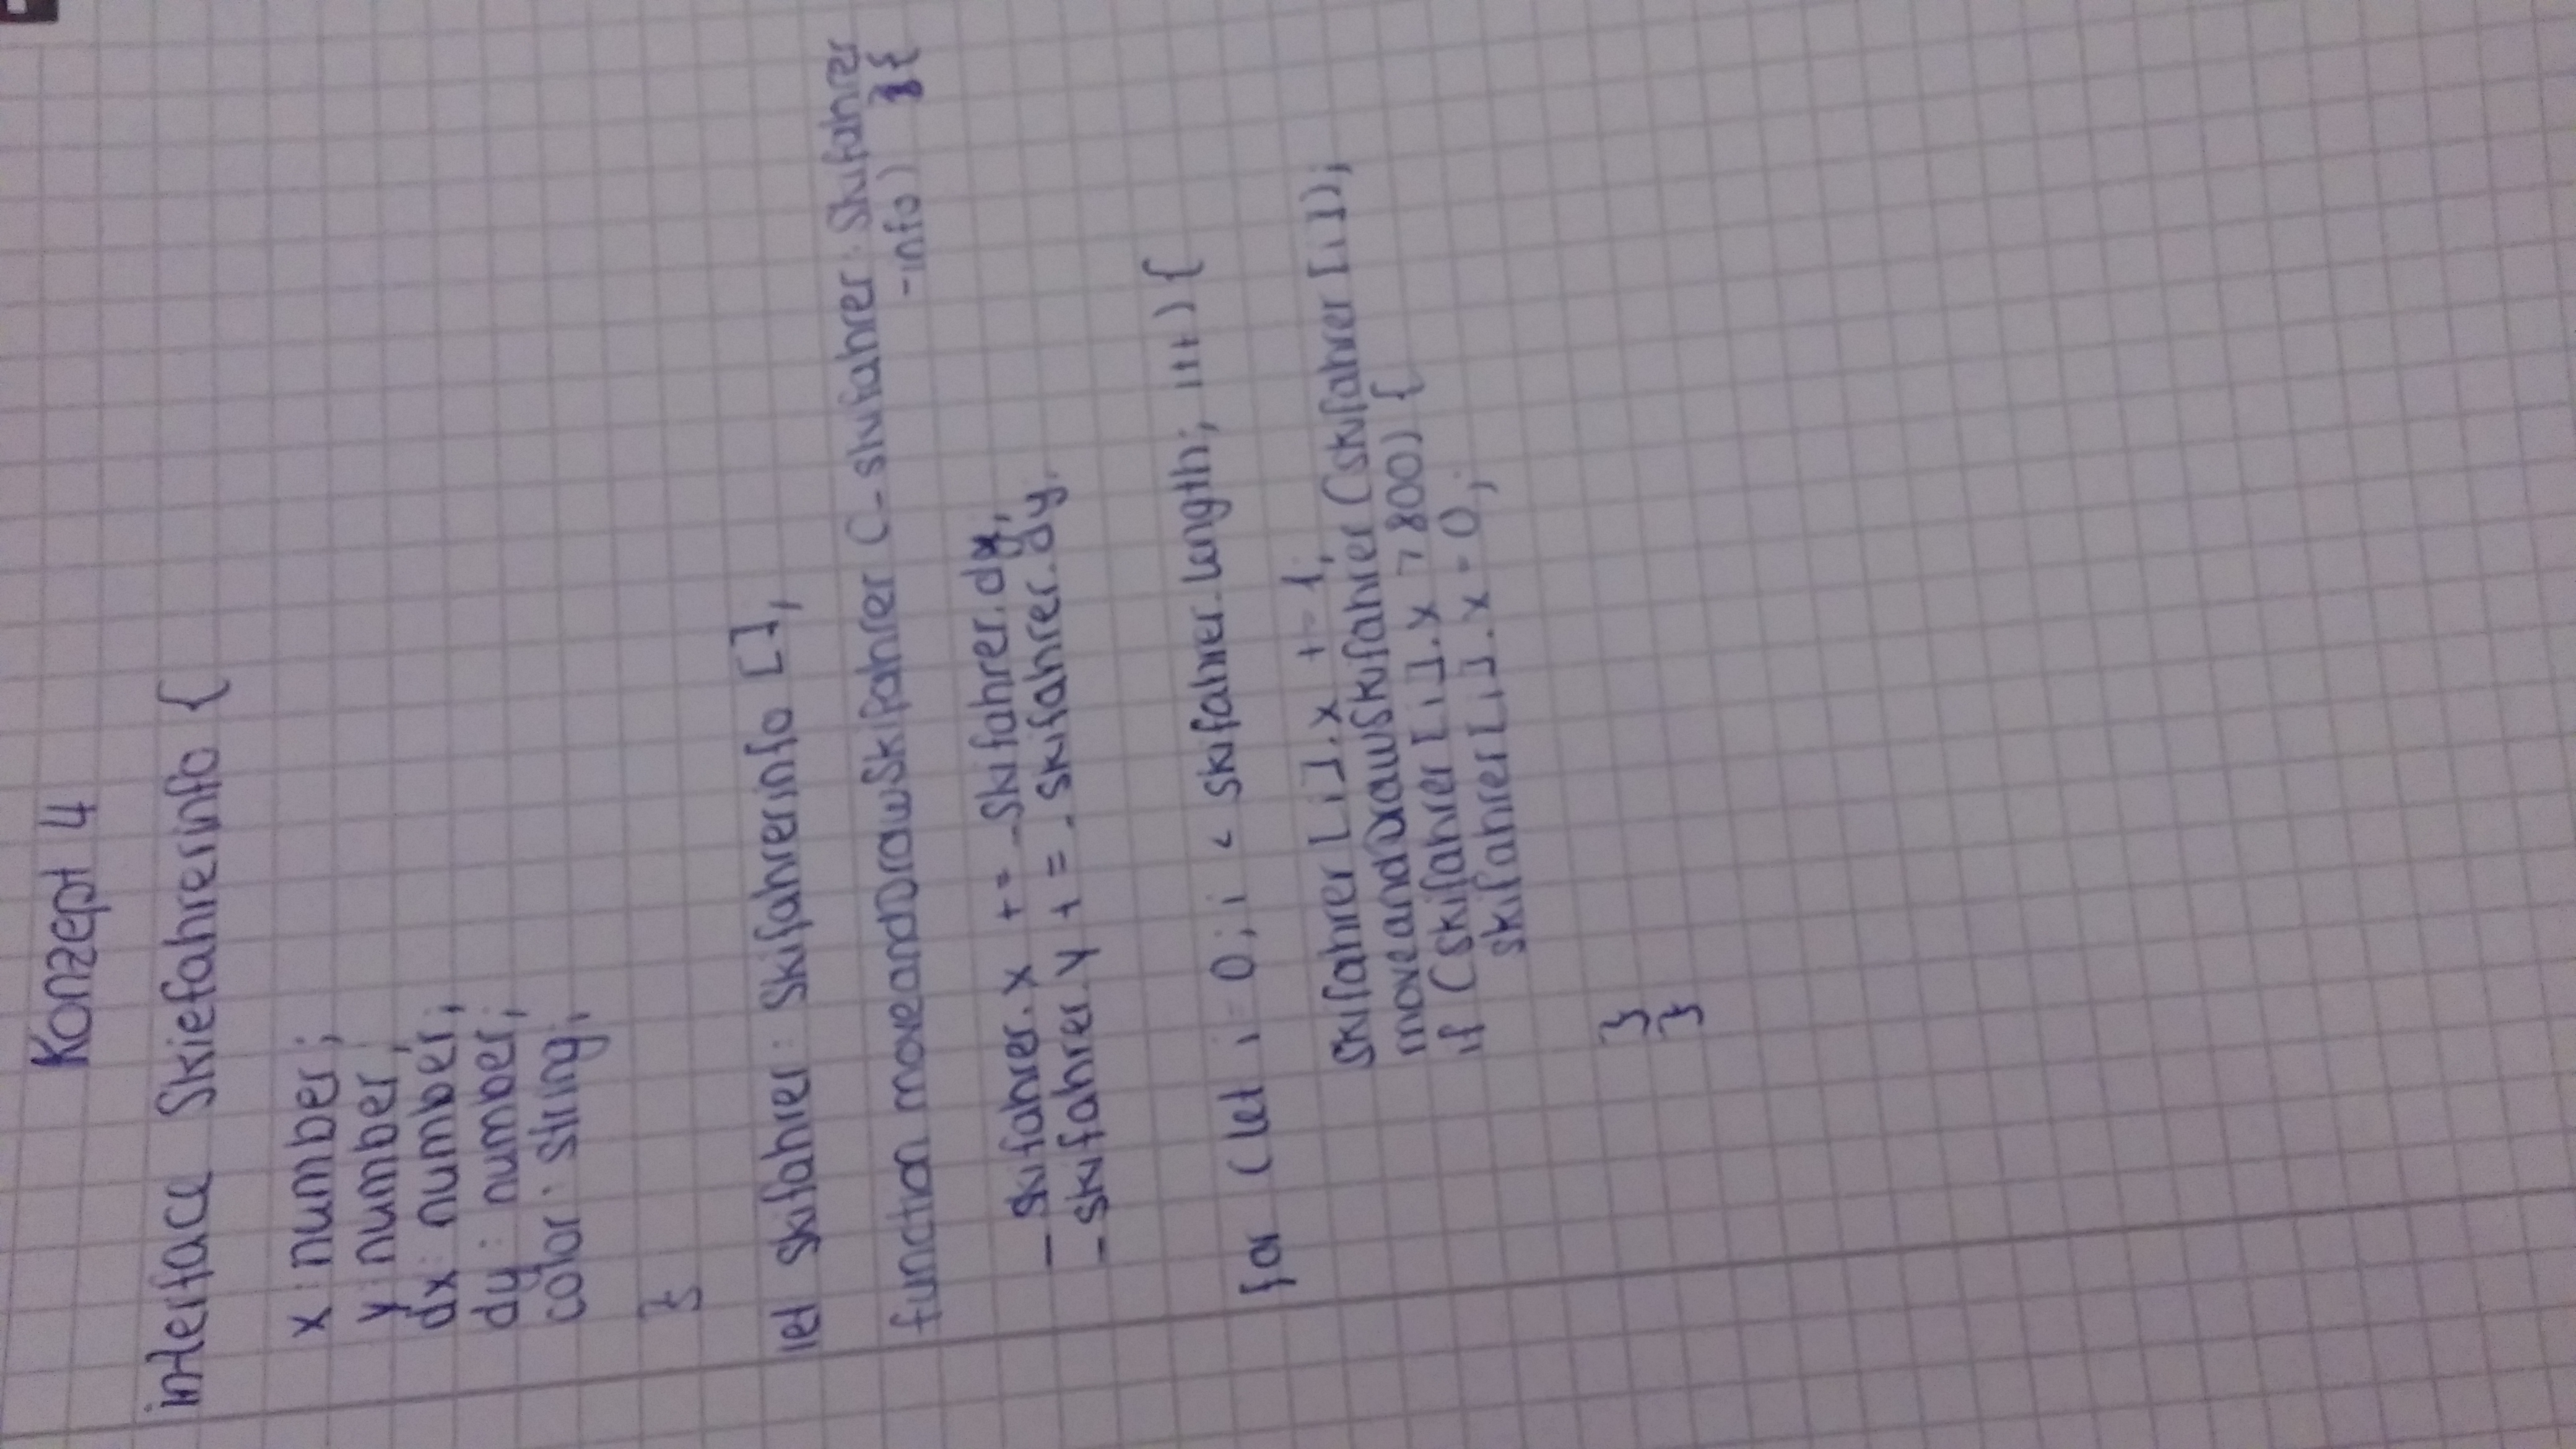 Konzept 4
interface Skiefahrerinfo {
x : number ;
y : number ;
dx : number ;
dy : number ;
color : string ;
}
let skifahrer : Skifahrerinfo [ ] ;
function moveandDrawSkifahrer ( _skifahrer : Skifahrer
-info ) {
_skifahrer.x += _skifahrer.dx;
_skifahrer.y += _skifahrer.dy;
for ( let i = 0 ; i < skifahrer.length; i++ ) {
skifahrer [i].x += 1;
moveandDrawSkifahrer (skifahrer [i]);
if (skifahrer [i].x > 800) {
skifahrer [i].x = 0;
}
}